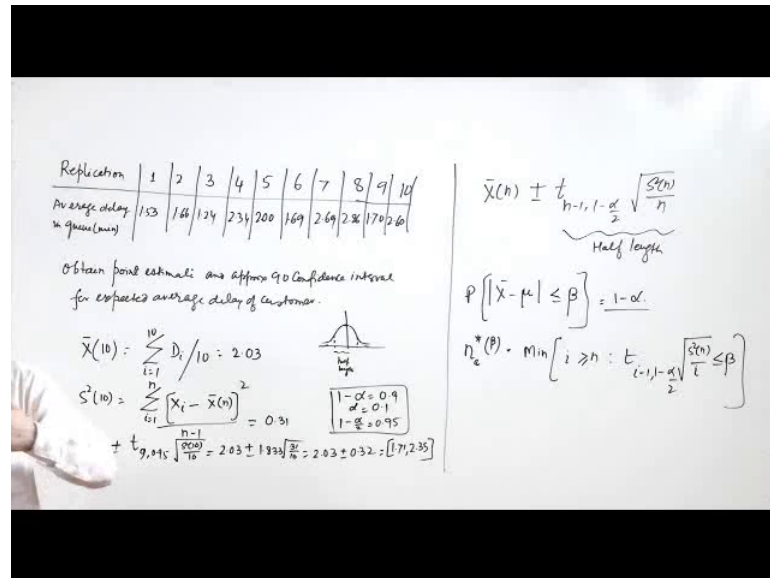 Replication 1 2 3 4 5 6 7 8 9 10
Average delay in queue(min) 1.53 1.66 1.24 2.34 2.00 1.69 2.69 2.86 1.70 2.60
obtain point estimate and approx 90 confidence interval
for expected average delay of customer.
X̄(10) = Σ_{i=1}^{10} D_i/10 = 2.03
half length
S²(10) = Σ_{i=1}^{n} [X_i - X̄(n)]² / n-1 = 0.31
1-α = 0.9
α = 0.1
1-α/2 = 0.95
± t_{9,0.95} √(S²(10)/10) = 2.03 ± 1.833 √(.31/10) = 2.03 ± 0.32 = [1.71, 2.35]
X̄(n) ± t_{n-1, 1-α/2} √(S²(n)/n)
Half length
P{|X̄-μ| ≤ β} = 1-α.
n*_a(β) = Min[i ≥ n : t_{i-1, 1-α/2} √(S²(n)/i) ≤ β]